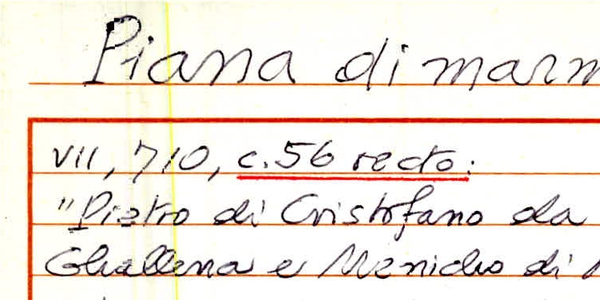 Piana di marm
VII, 710, c. 56 recto:
"Pietro di Cristofano da
Ghallena e Menicho di